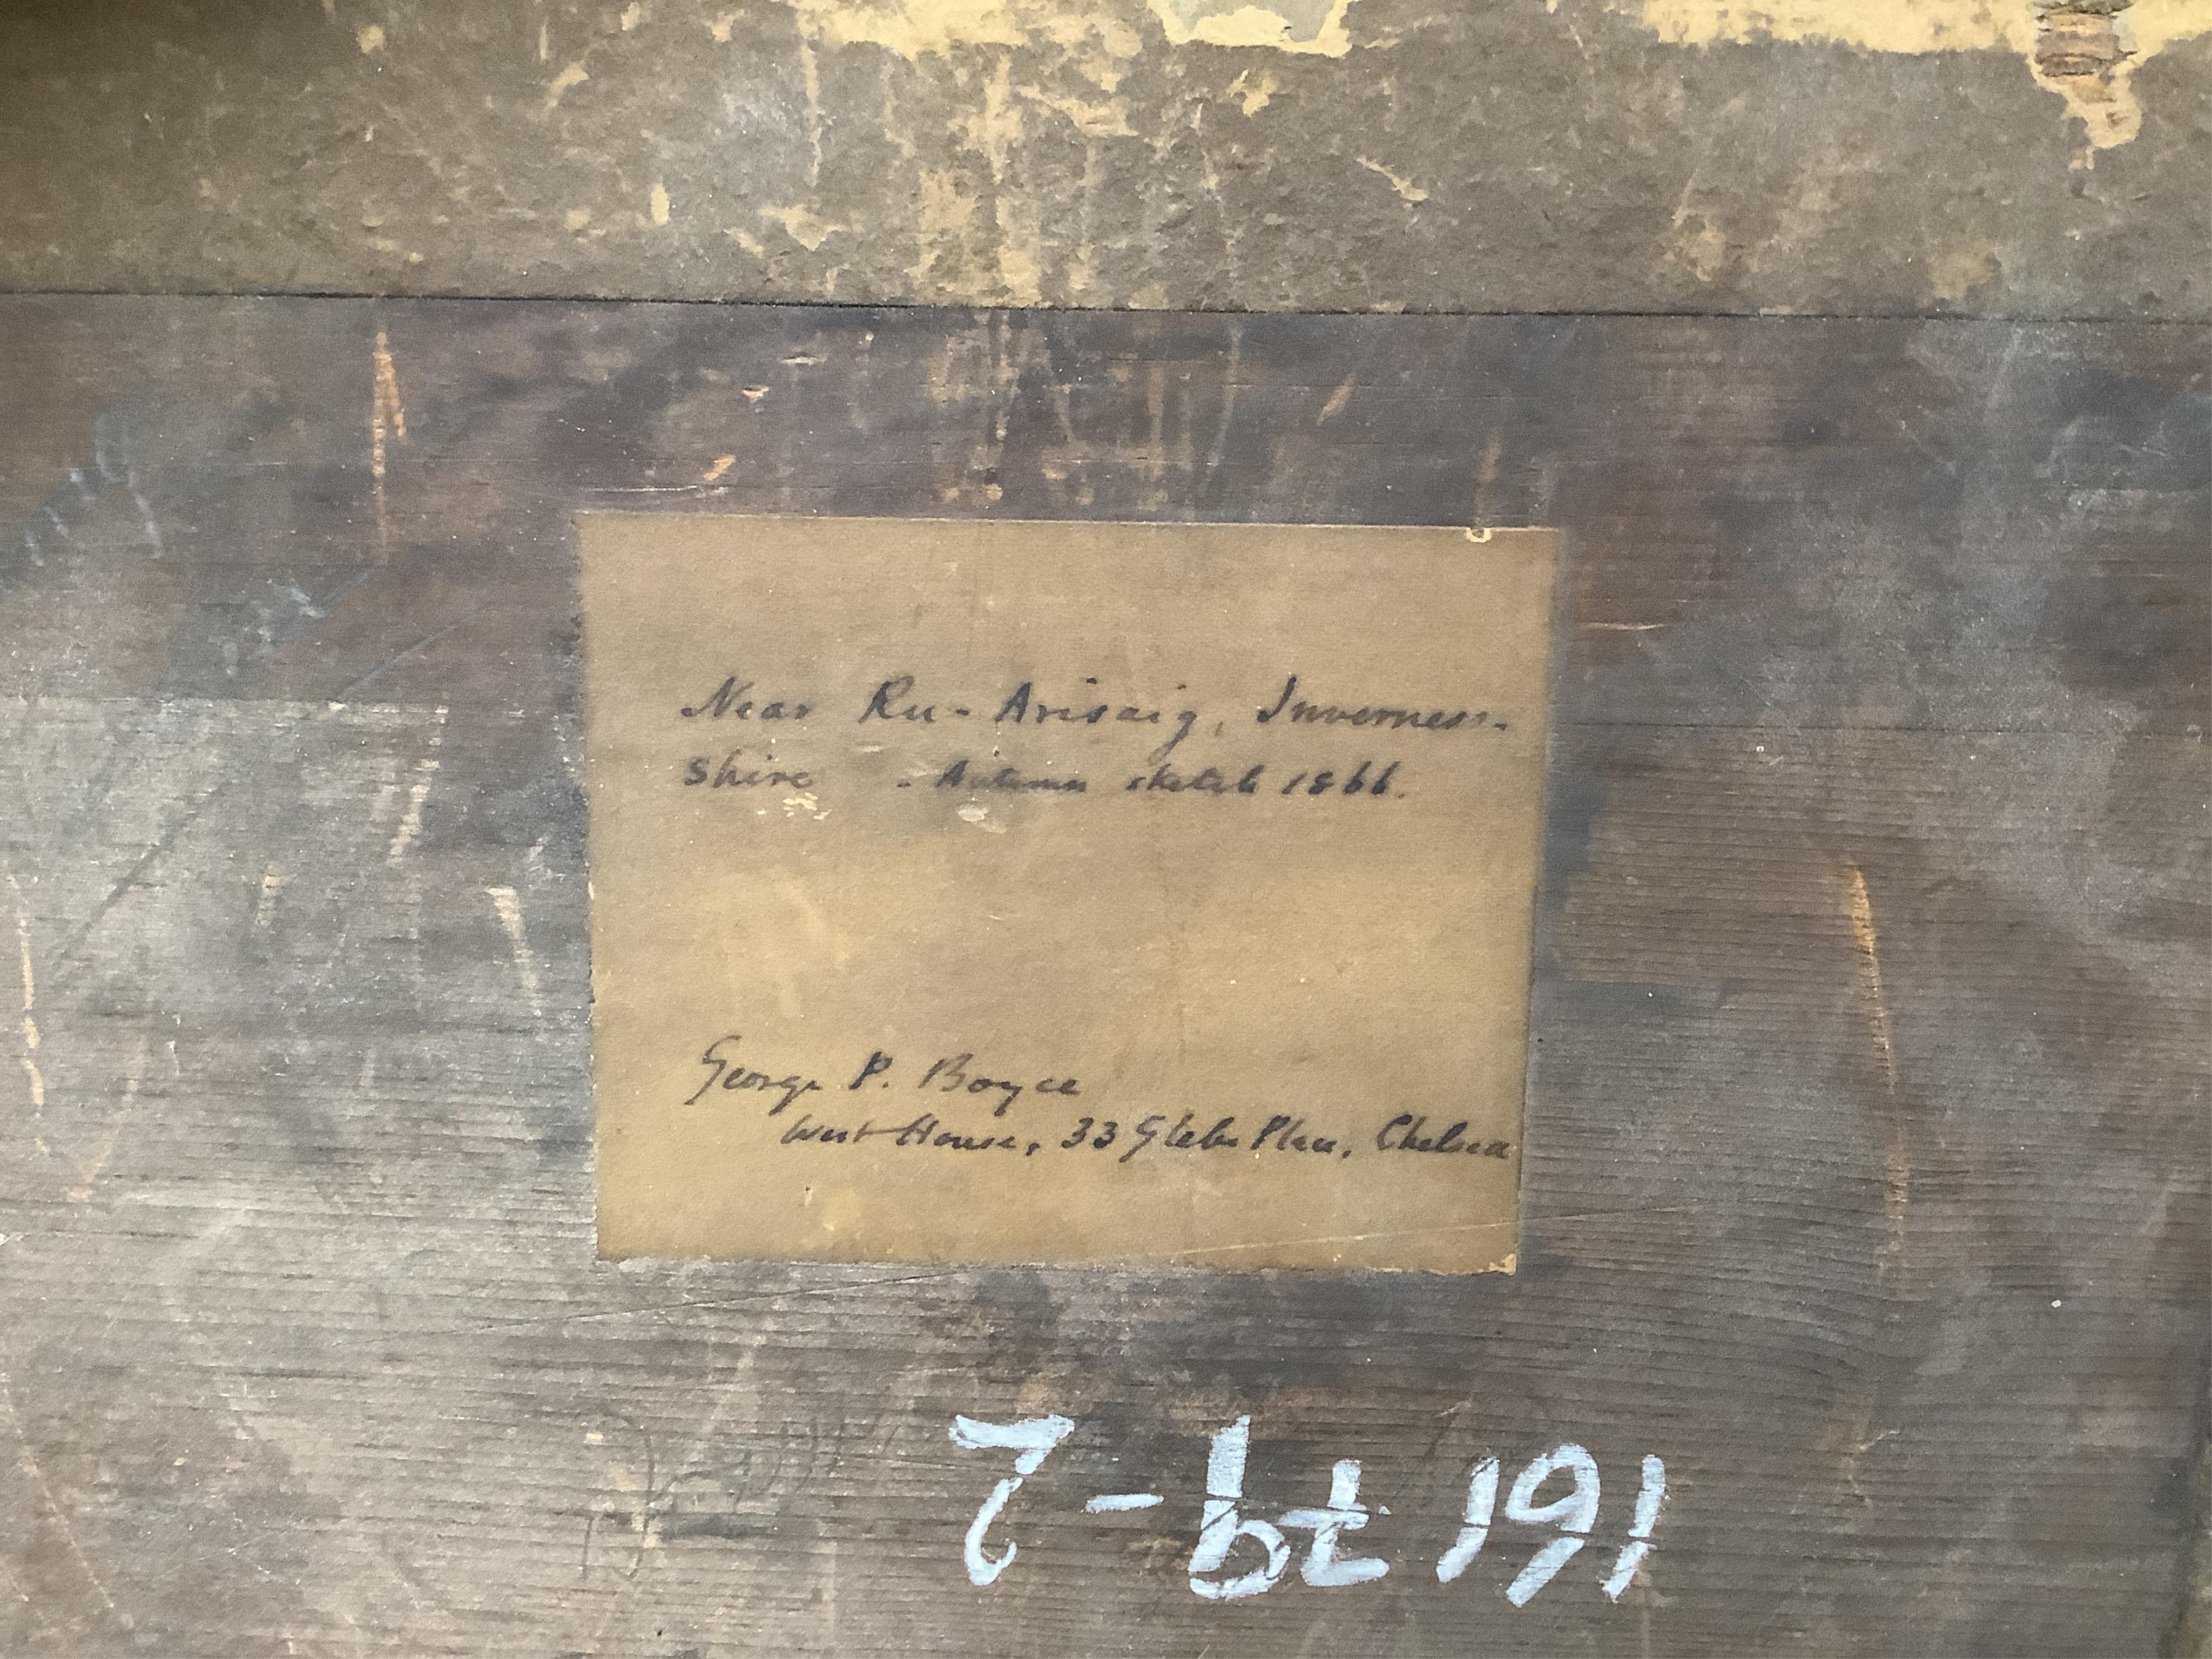 Near Ru-Arisaig, Inverness-
Shire - Autumn sketch 1866.
George P. Boyce
West House, 33 Glebe Place, Chelsea